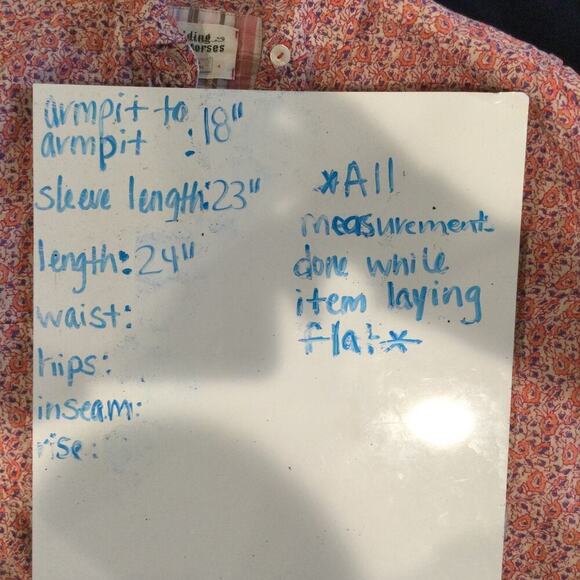 Horses
armpit to
armpit : 18"
sleeve length: 23"
length: 24"
waist:
hips:
inseam:
rise:
*All
measurements
done while
item laying
flat*